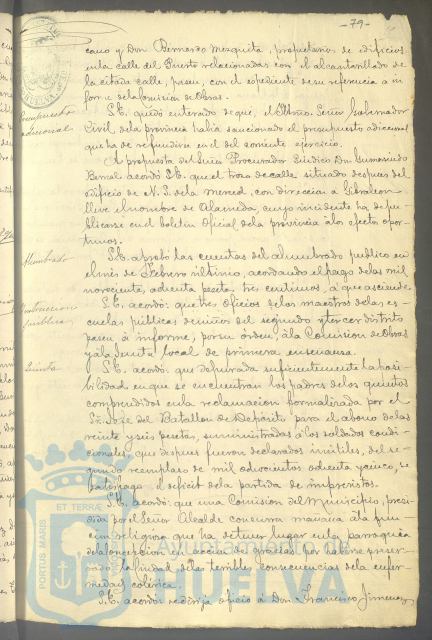 -79-
cano y Don Bernardo Mezquita, propietarios de edificios
en la calle del Puerto relacionadas con el alcantarillado de
la citada calle, pasen, con el expediente de su referencia a in
forme de la Comision de Obras.
Presupuesto
adicional
S.E. quedó enterado de que, el Iltmo. Señor Gobernador
Civil, de la provincia habia sancionado el presupuesto adicional
que ha de refundirse en el del corriente ejercicio.
A propuesta del Señor Procurador Síndico Don Gumersindo
Bernal acordó S.E. que el trozo de calle, situado despues del
edificio de N. S. de la Merced, con direccion a Gibraleon
lleve el nombre de Alameda, cuyo incidente ha de pu-
blicarse en el boletin Oficial de la provincia a los efectos opor-
tunos.
Alumbrado
S.E. aprobó las cuentas del alumbrado publico en
el mes de Febrero último, acordando el pago de las mil
novecientas, ochenta pesetas tres centimos, a que asciende.
Instruccion
publica
S.E. acordó: que tres oficios de los maestros de las es-
cuelas públicas de niños del segundo y tercer distrito
pasen a informe, por su órden, a la Comision de Obras
y a la Junta local de primera enseñanza.
Quintas
S.E. acordó, que depurada suficientemente la posi-
bilidad en que se encuentran los padres de los quintos
comprendidos en la reclamacion formalizada por el
Sr. Jefe del Batallon de Depósito para el abono de las
veinte y seis pesetas, suministradas a los soldados condi-
cionales, que despues fueron declarados inútiles, del se-
gundo reemplazo de mil ochocientos ochenta y cinco, se
satisfaga el deficit de la partida de imprevistos.
S.E. acordó: que una Comision del Municipio, presi-
dida por el Señor Alcalde concurra mañana a la fun-
cion religiosa que ha de tener lugar en la parroquia
de la Concepcion en accion de gracias por haber preser-
vado la Ciudad de las terribles consecuencias de la enfer-
medad colérica.
S.E. acordó: se dirija oficio a Don Francisco Jimenez
ET TERRÆ
PORTUS MARIS
HUELVA